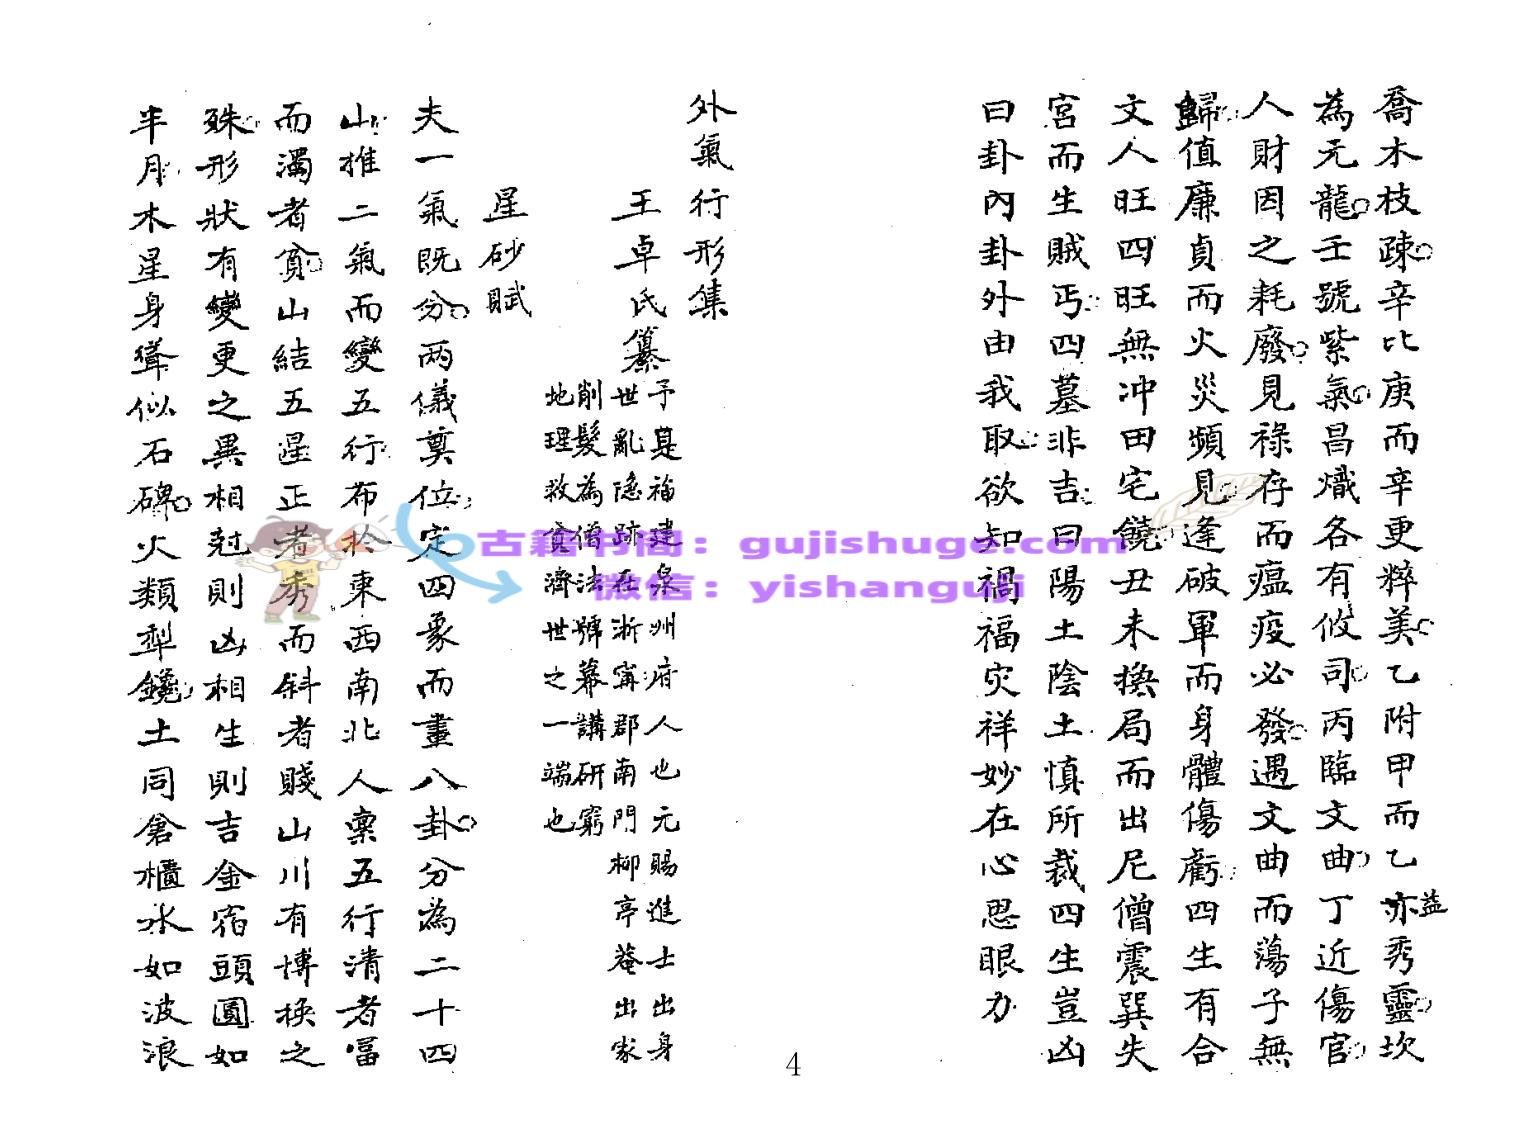 喬木枝疎辛比庚而辛更粹美乙附甲而乙亦益秀靈坎
為元龍壬號紫氣昌熾各有攸司丙臨文曲丁近傷官
人財因之耗廢見祿存而瘟疫必發遇文曲而蕩子無
歸值廉貞而火災頻見逢破軍而身體傷虧四生有合
文人旺四旺無冲田宅饒丑未換局而出尼僧震巽失
宮而生賊丐四墓非吉曰陽土陰土慎所裁四生豈凶
曰卦內卦外由我取欲知禍福灾祥妙在心思眼力
外氣行形集
王卓氏纂
予是福建泉州府人也元賜進士出身
世亂隐跡在浙甯郡南門柳亭菴出家
削髮為僧法號幕講研窮
地理救貧濟世之一端也
星砂賦
夫一氣既分两儀奠位定四象而畫八卦分為二十四
山推二氣而變五行布於東西南北人稟五行清者富
而濁者貧山結五星正者秀而斜者賤山川有博換之
殊形狀有變更之異相尅則凶相生則吉金宿頭圓如
半月木星身聳似石碑火類犁鑱土同倉櫃水如波浪
古籍书阁：gujishuge.com
微信：yishanguji
4